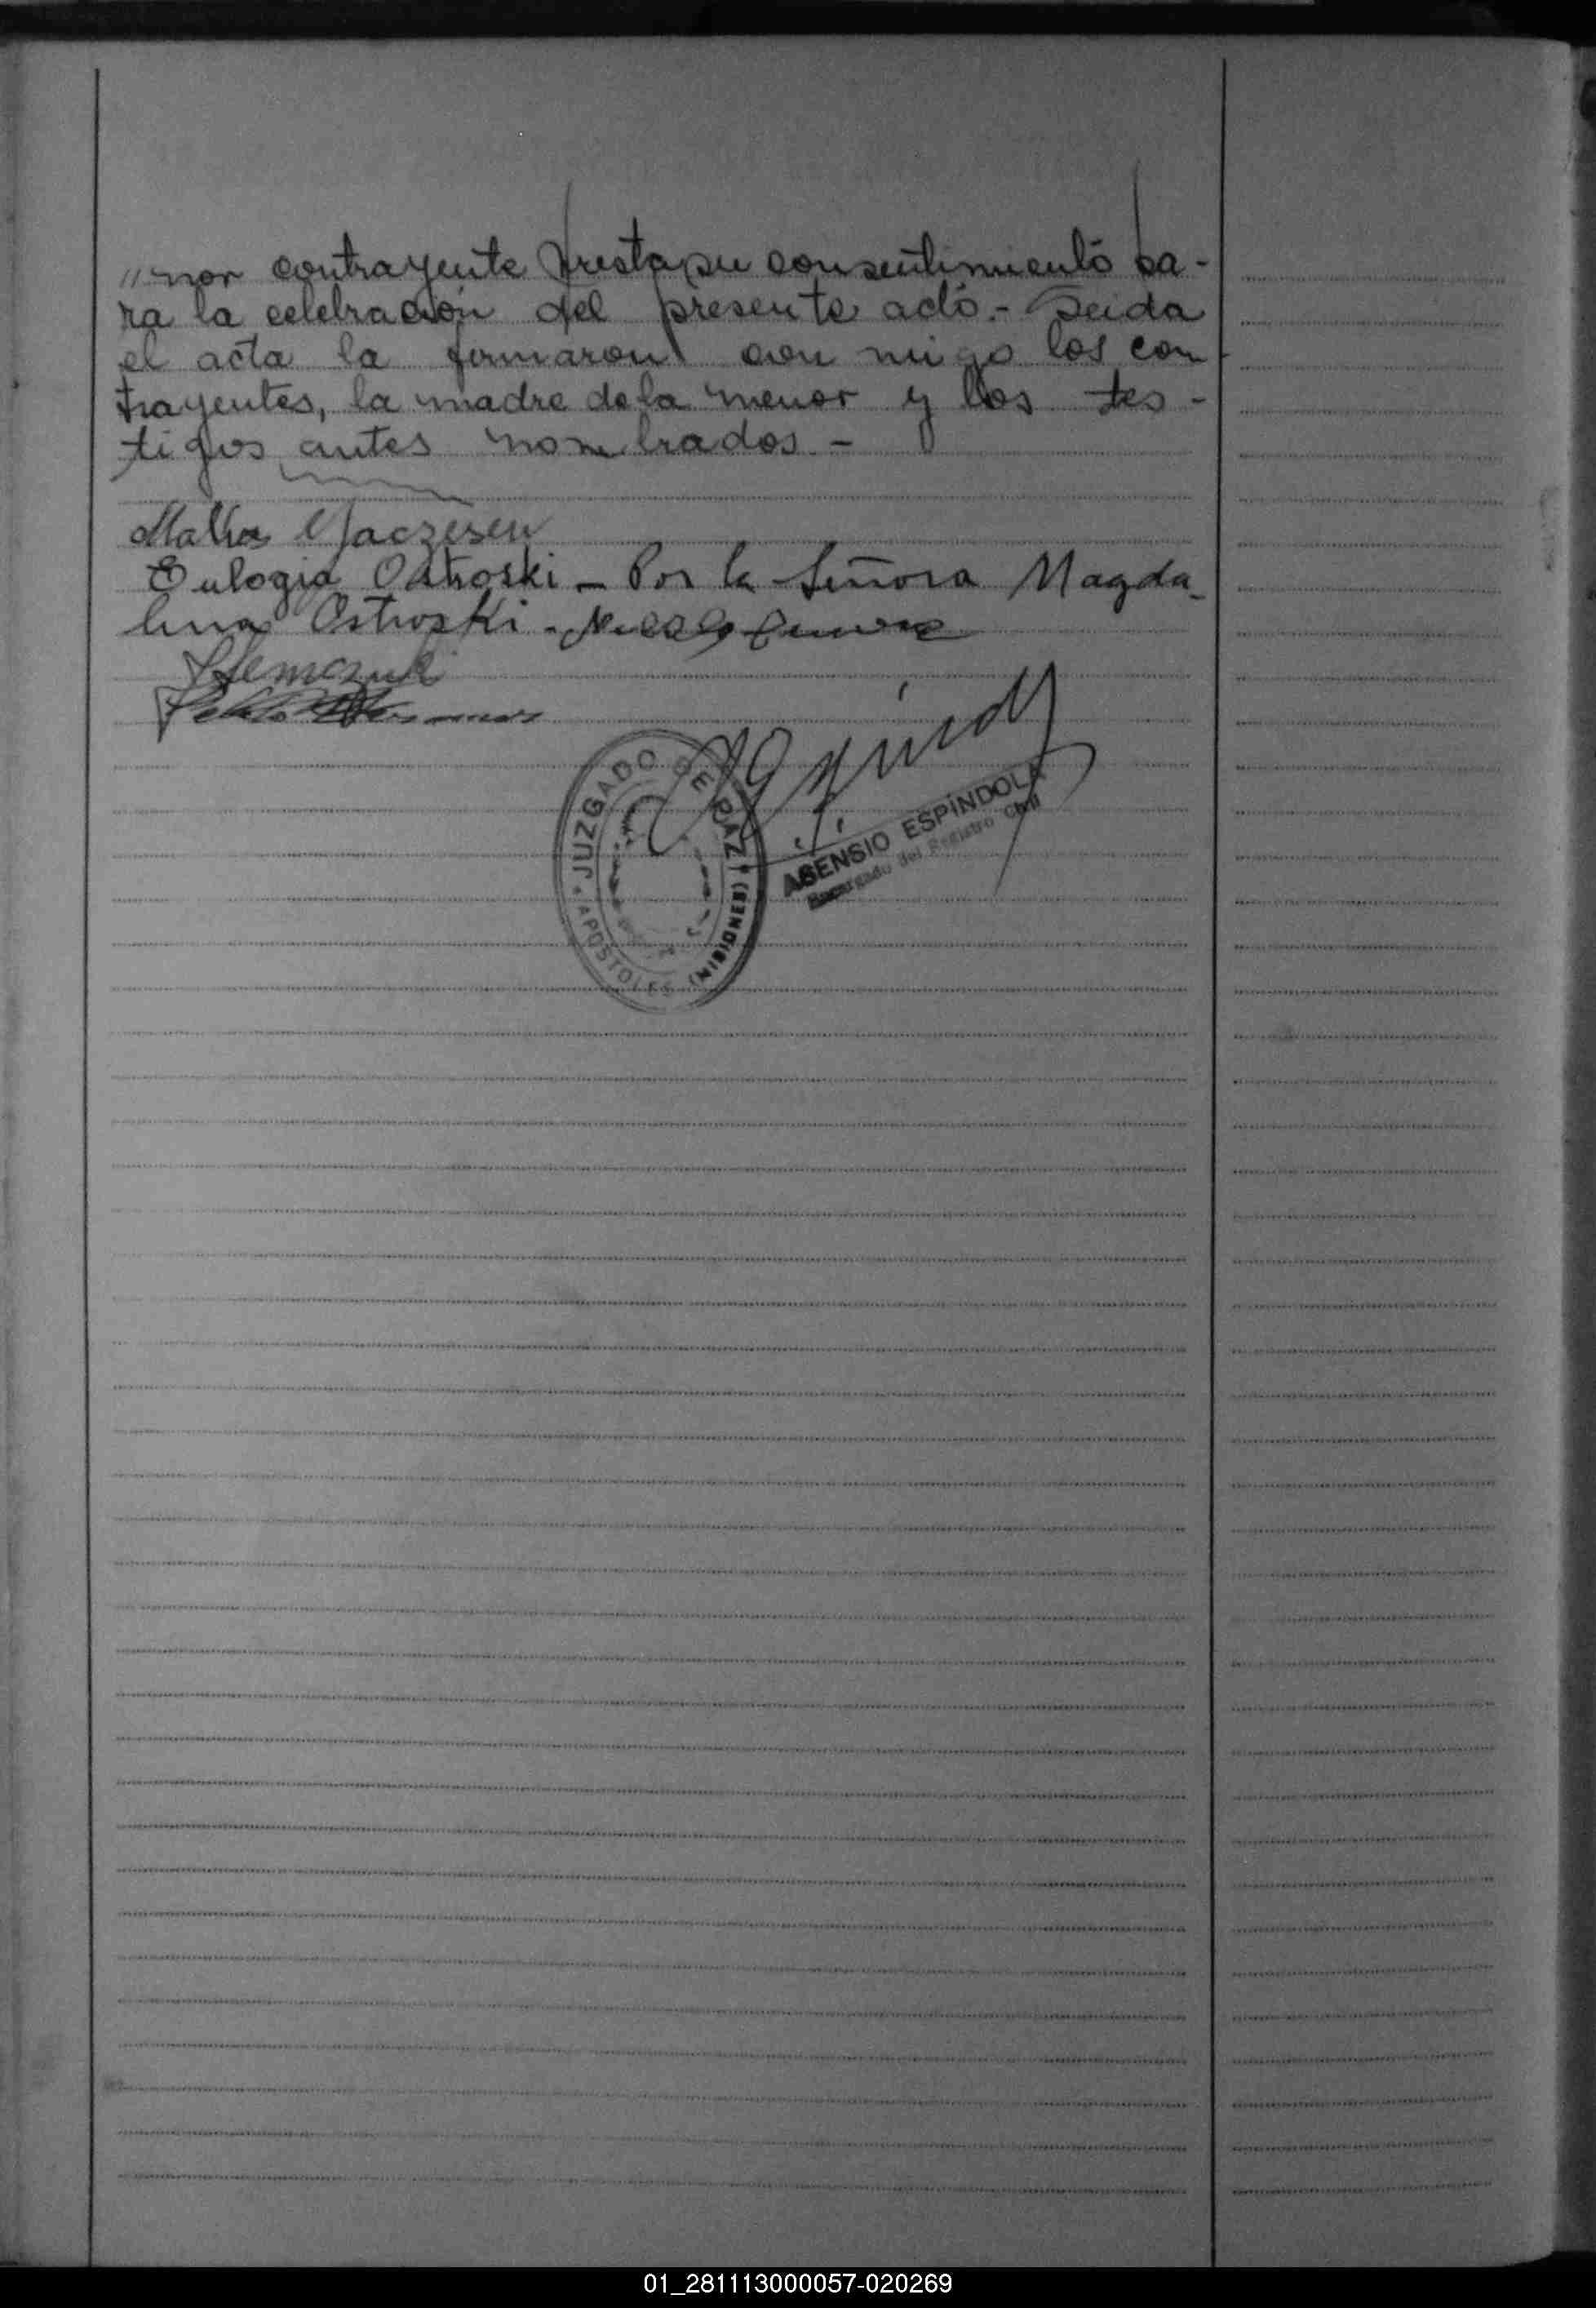 "nor contrayente presta su consentimiento pa-
ra la celebración del presente acto.- Leida
el acta la firmaron con migo los con
trayentes, la madre de la menor y los tes-
tigos antes nombrados.-
Matias
Eulogia Ostroski - Por la Señora Magda-
lena Ostroski -
JUZGADO DE PAZ
APOSTOLES (MISIONES)
ASENSIO ESPINDOLA
Encargado del Registro Civil
01_281113000057-020269